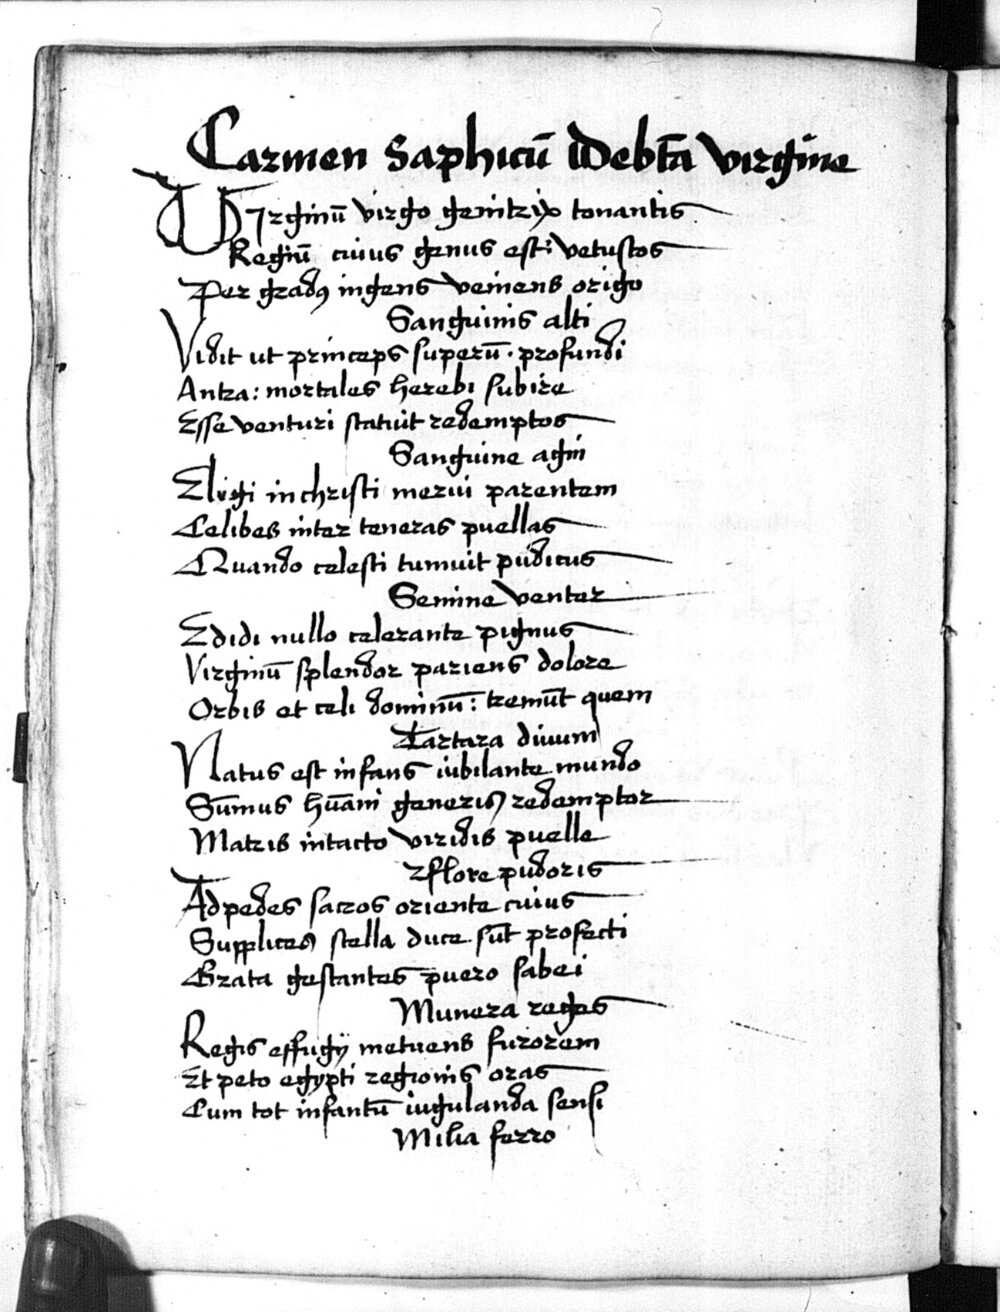 Carmen Saphicū de bt̄a virgine
Virginū virgo genitrix tonantis
Regiū cuius genus est: vetustos
Per gradus ingens veniens origo
Sanguinis alti
Vidit ut princeps superū. profundi
Antra: mortales herebi subire
Esse venturi statuit redemptos
Sanguine agni
Eligi in christi merui parentem
Celibes inter teneras puellas
Quando celesti tumuit pudicus
Semine venter
Edidi nullo celerante pignus
Virginū splendor pariens dolore
Orbis et celi dominū: tremūt quem
Tartara divum
Natus est infans iubilante mundo
Sūmus hūani generis redemptor
Matris intacto viridis puelle
Flore pudoris
Ad pedes sacros oriente cuius
Supplices stella duce sūt profecti
Grata gestantes puero sabei
Munera reges
Regis effugij metuens furorem
Et peto egypti regionis oras
Cum tot infantū iugulanda sensi
Milia ferro